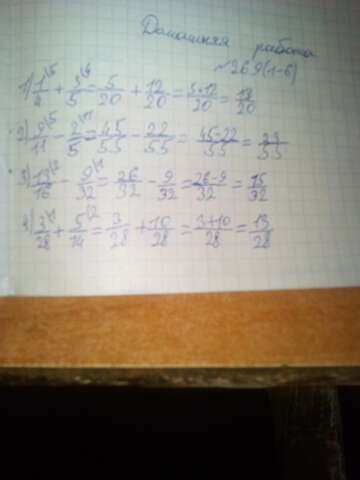 Домашняя работа
№269(1-6)
1) 1/4\5 + 3/5\4 = 5/20 + 12/20 = 5+12/20 = 17/20
2) 9/11\5 - 2/5\11 = 45/55 - 22/55 = 45-22/55 = 23/55
3) 13/16\2 - 9/32\1 = 26/32 - 9/32 = 26-9/32 = 15/32
4) 3/28\1 + 5/14\2 = 3/28 + 10/28 = 3+10/28 = 13/28